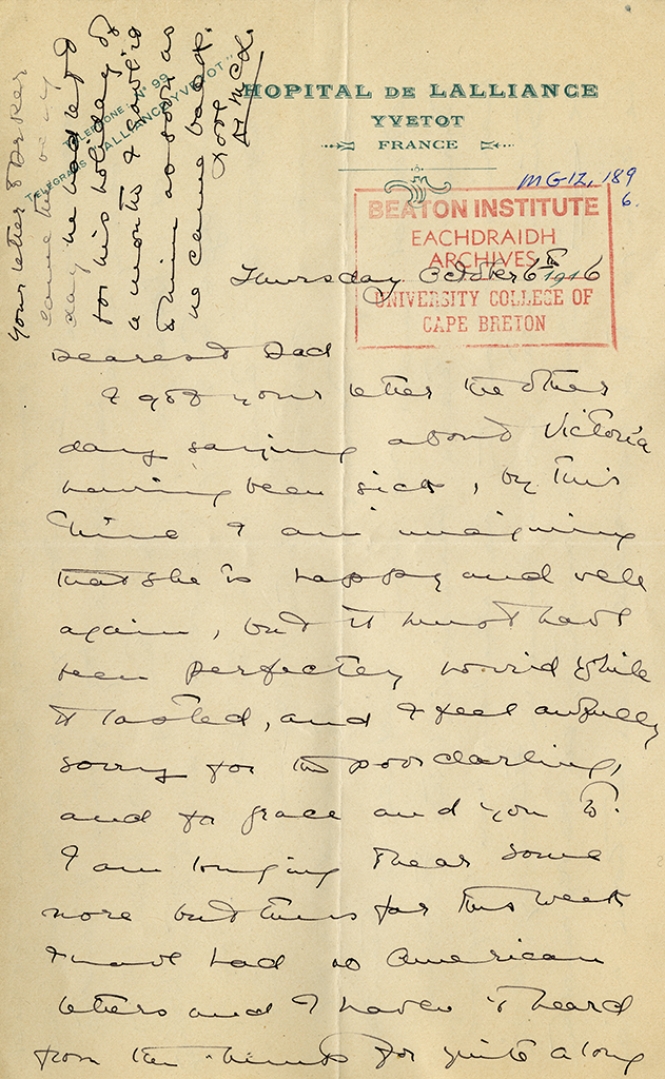 HOPITAL DE LALLIANCE
YVETOT
FRANCE
TELEPHONE N° 99
TELEGRAMS "ALLIANCE YVETOT"
MG12, 189
6.
BEATON INSTITUTE
EACHDRAIDH
ARCHIVES
UNIVERSITY COLLEGE OF
CAPE BRETON
Thursday October 6th 1916
Dearest Dad
I got your letter the other
day saying about Victoria
having been sick, by this
time I am imagining
that she is happy and well
again, but it must have
been perfectly horrid while
it lasted, and I feel awfully
sorry for the poor darling,
and for Grace and you to.
I am longing to hear some
more but thus far this week
I have had no American
letters and I haven't heard
from the for quite a long
your letter to
came the very
day he had left
for his holiday of
a month I gave it
to him as soon as
he came back.
Love